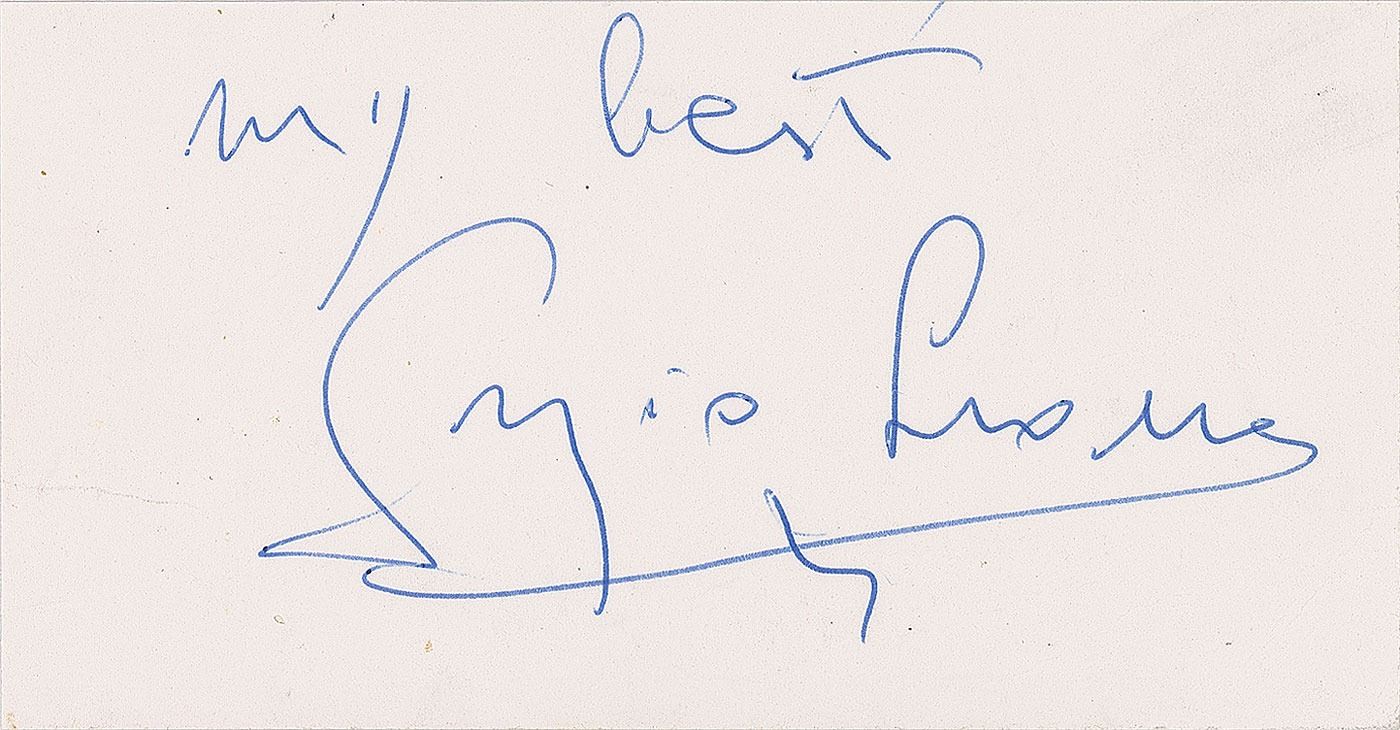 my best
Sergio Leone